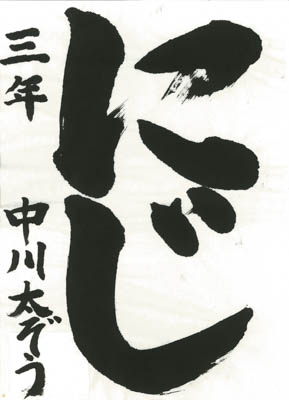 にじ
三年 中川太ぞう